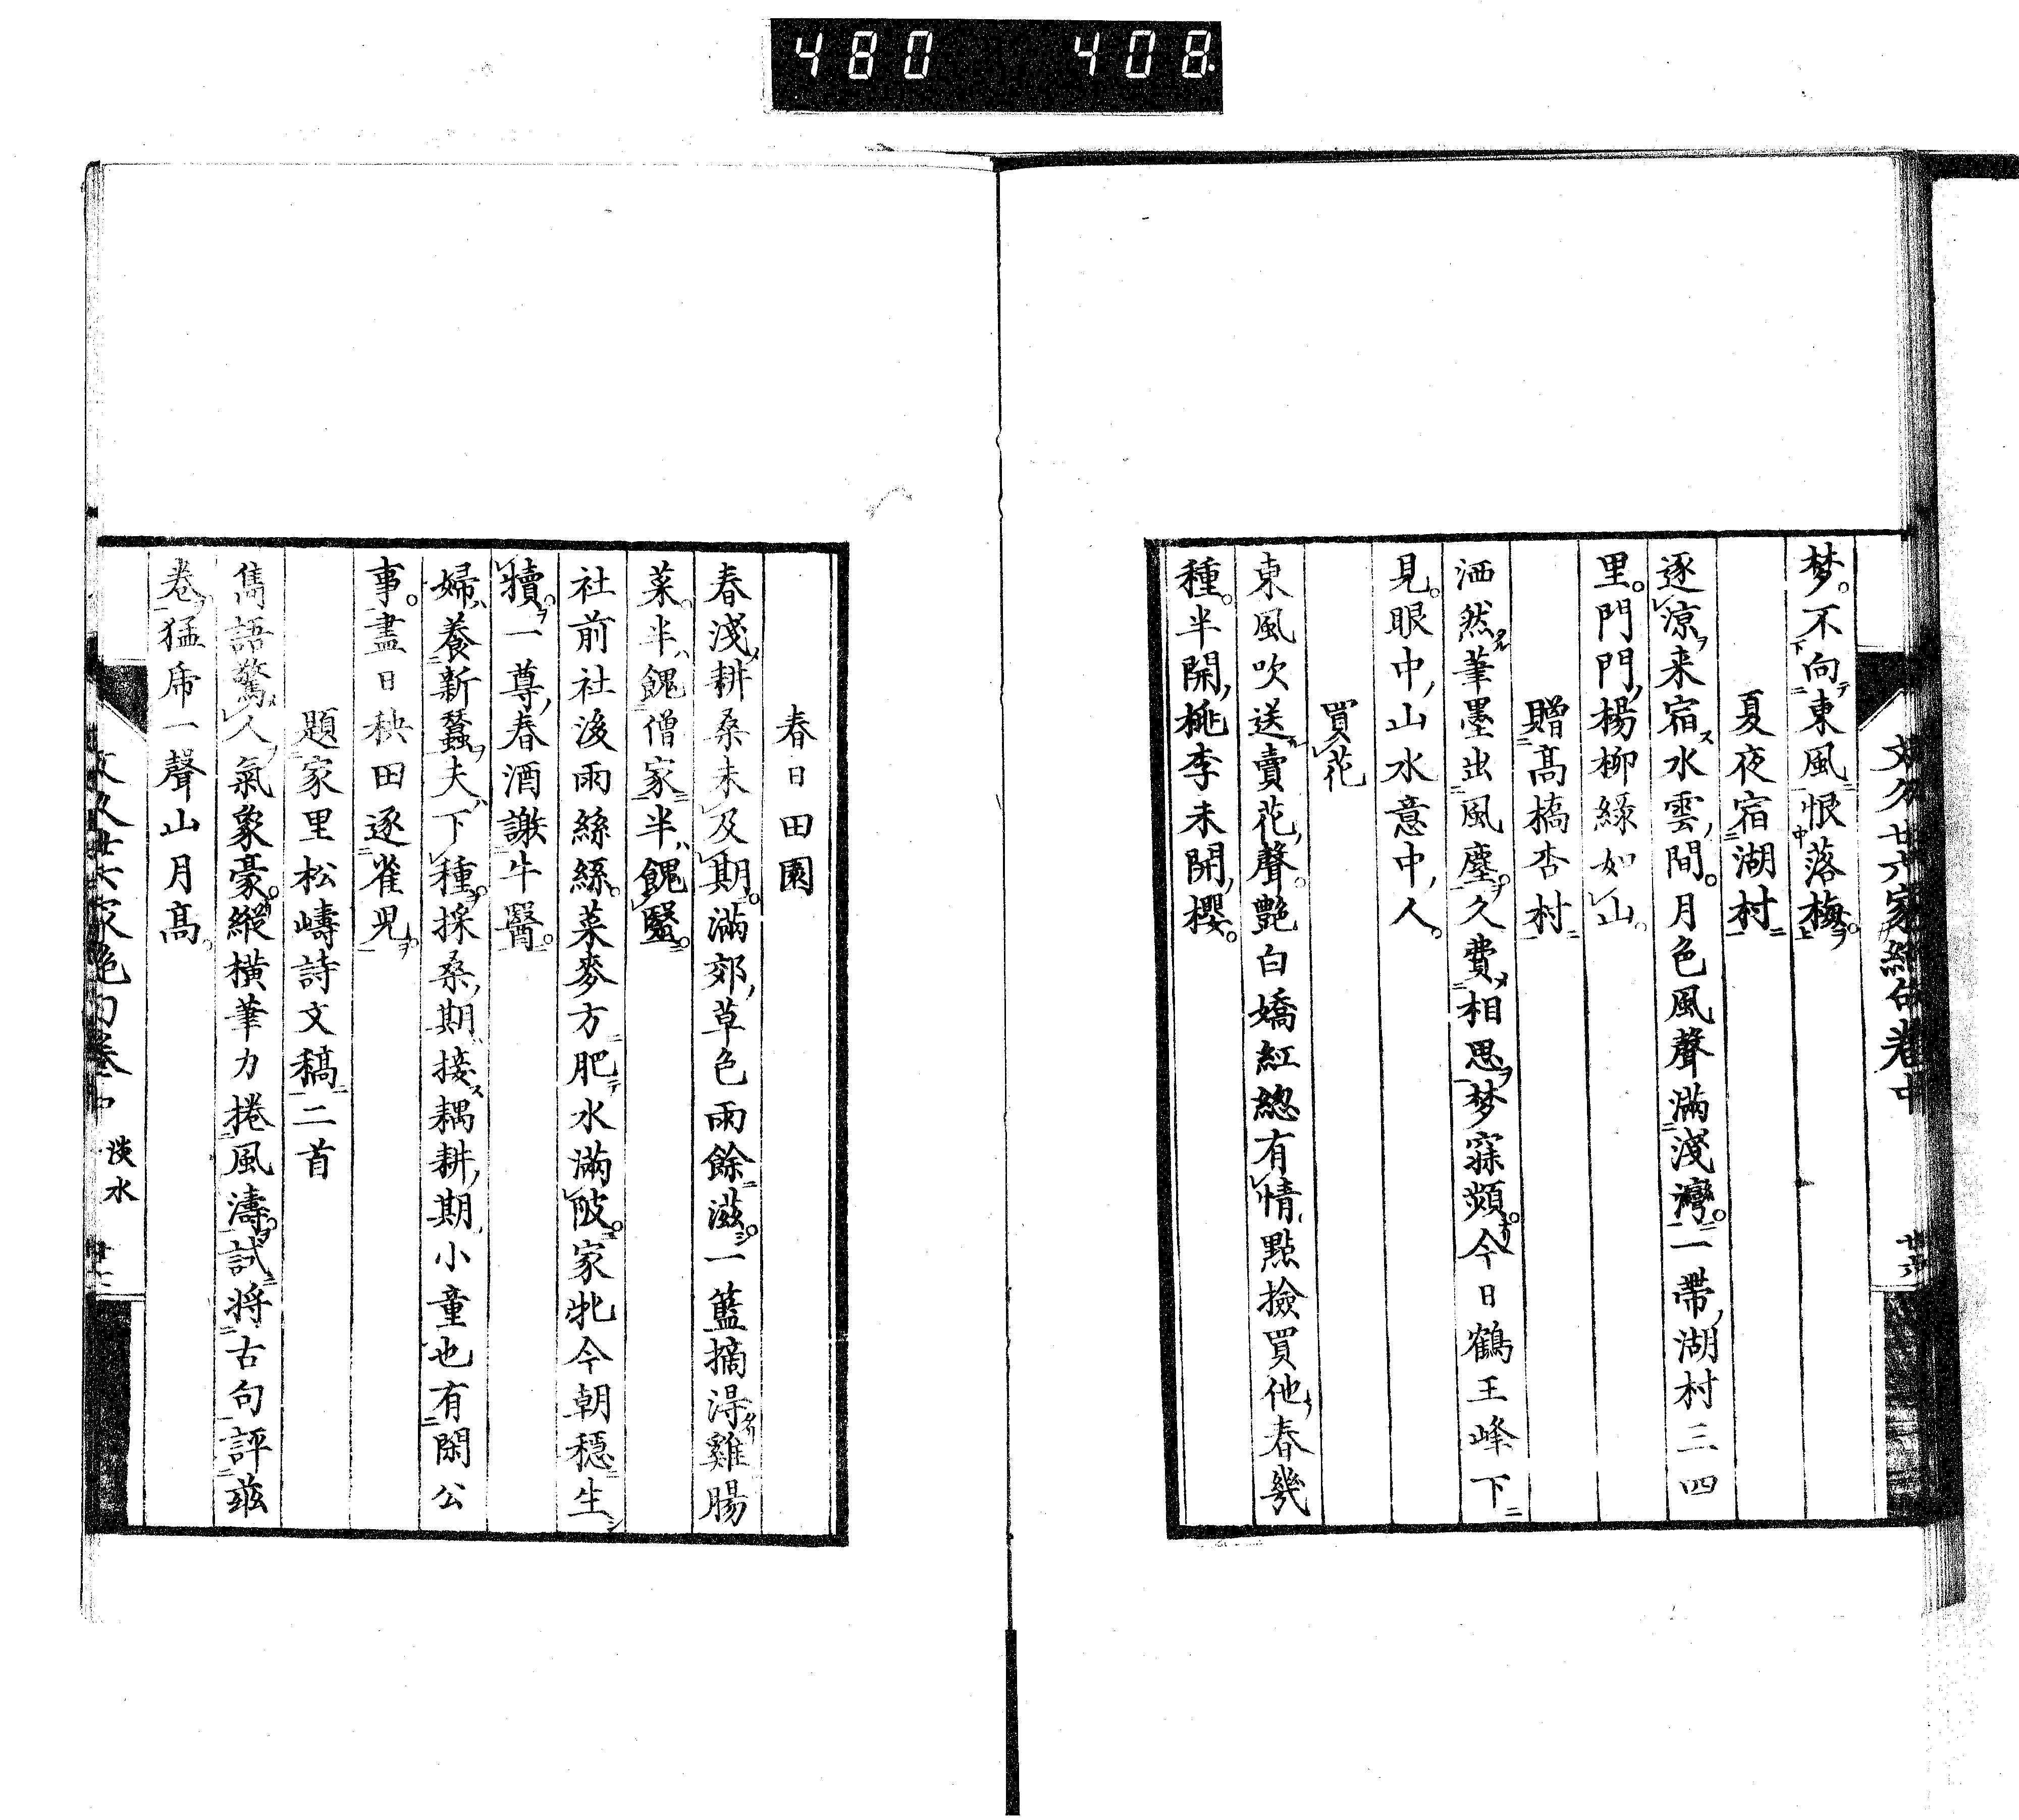 480 408
文久廿六家絶句卷中
夢。不向東風恨落梅。
夏夜宿湖村
逐涼来宿水雲間。月色風聲滿淺灣。一帶湖村三四
里。門門楊柳綠如山。
贈高橋杏村
洒然筆墨出風塵。久費相思夢寐頻。今日鶴王峰下
見。眼中山水意中人。
買花
東風吹送賣花聲。艷白嬌紅總有情。點撿買他春幾
種。半開桃李未開櫻。
春日田園
春淺耕桑未及期。滿郊草色雨餘滋。一籃摘得雞腸
菜。半餽僧家半餽醫。
社前社後雨絲絲。菜麥方肥水滿陂。家牝今朝穩生
犢。一尊春酒謝牛醫。
婦養新蠶夫下種。採桑期接耦耕期。小童也有閑公
事。盡日秧田逐雀兒。
題家里松嶹詩文稿二首
雋語驚人氣象豪。縱橫筆力捲風濤。試将古句評玆
卷。猛乕一聲山月高。
文久廿六家絶句卷中 淡水